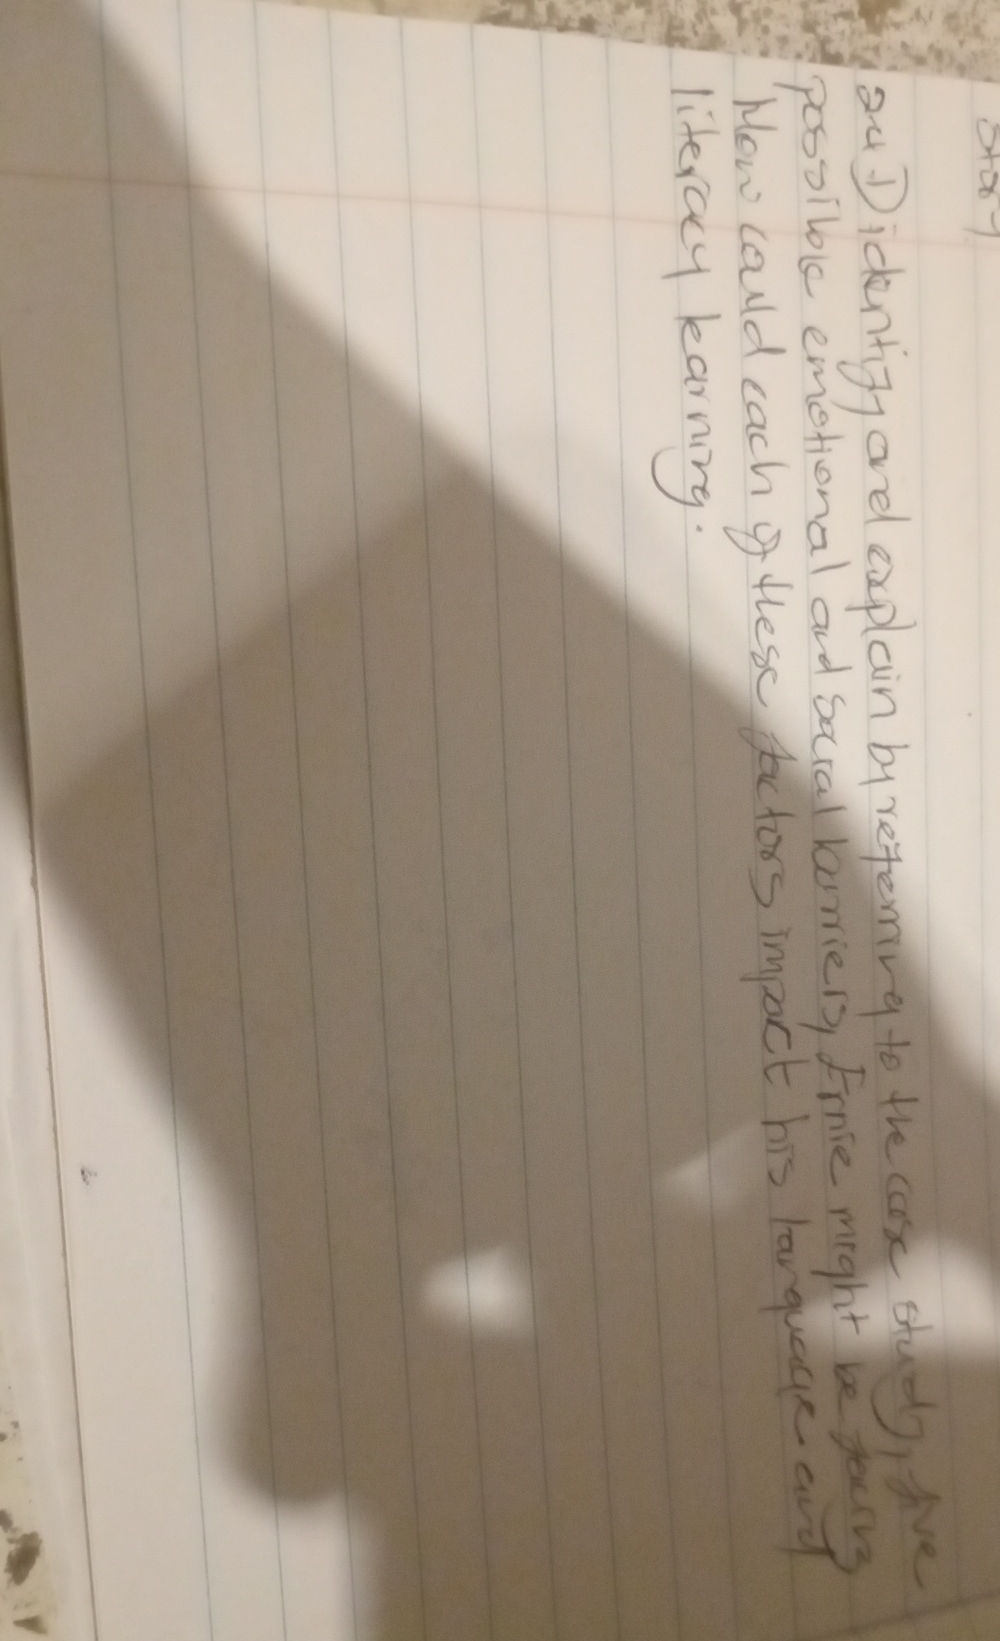 Story
2.4.1) identify and explain by referring to the case study, five
possible emotional and social barriers, Ernie might be facing
How could each of these factors impact his language and
literacy learning.